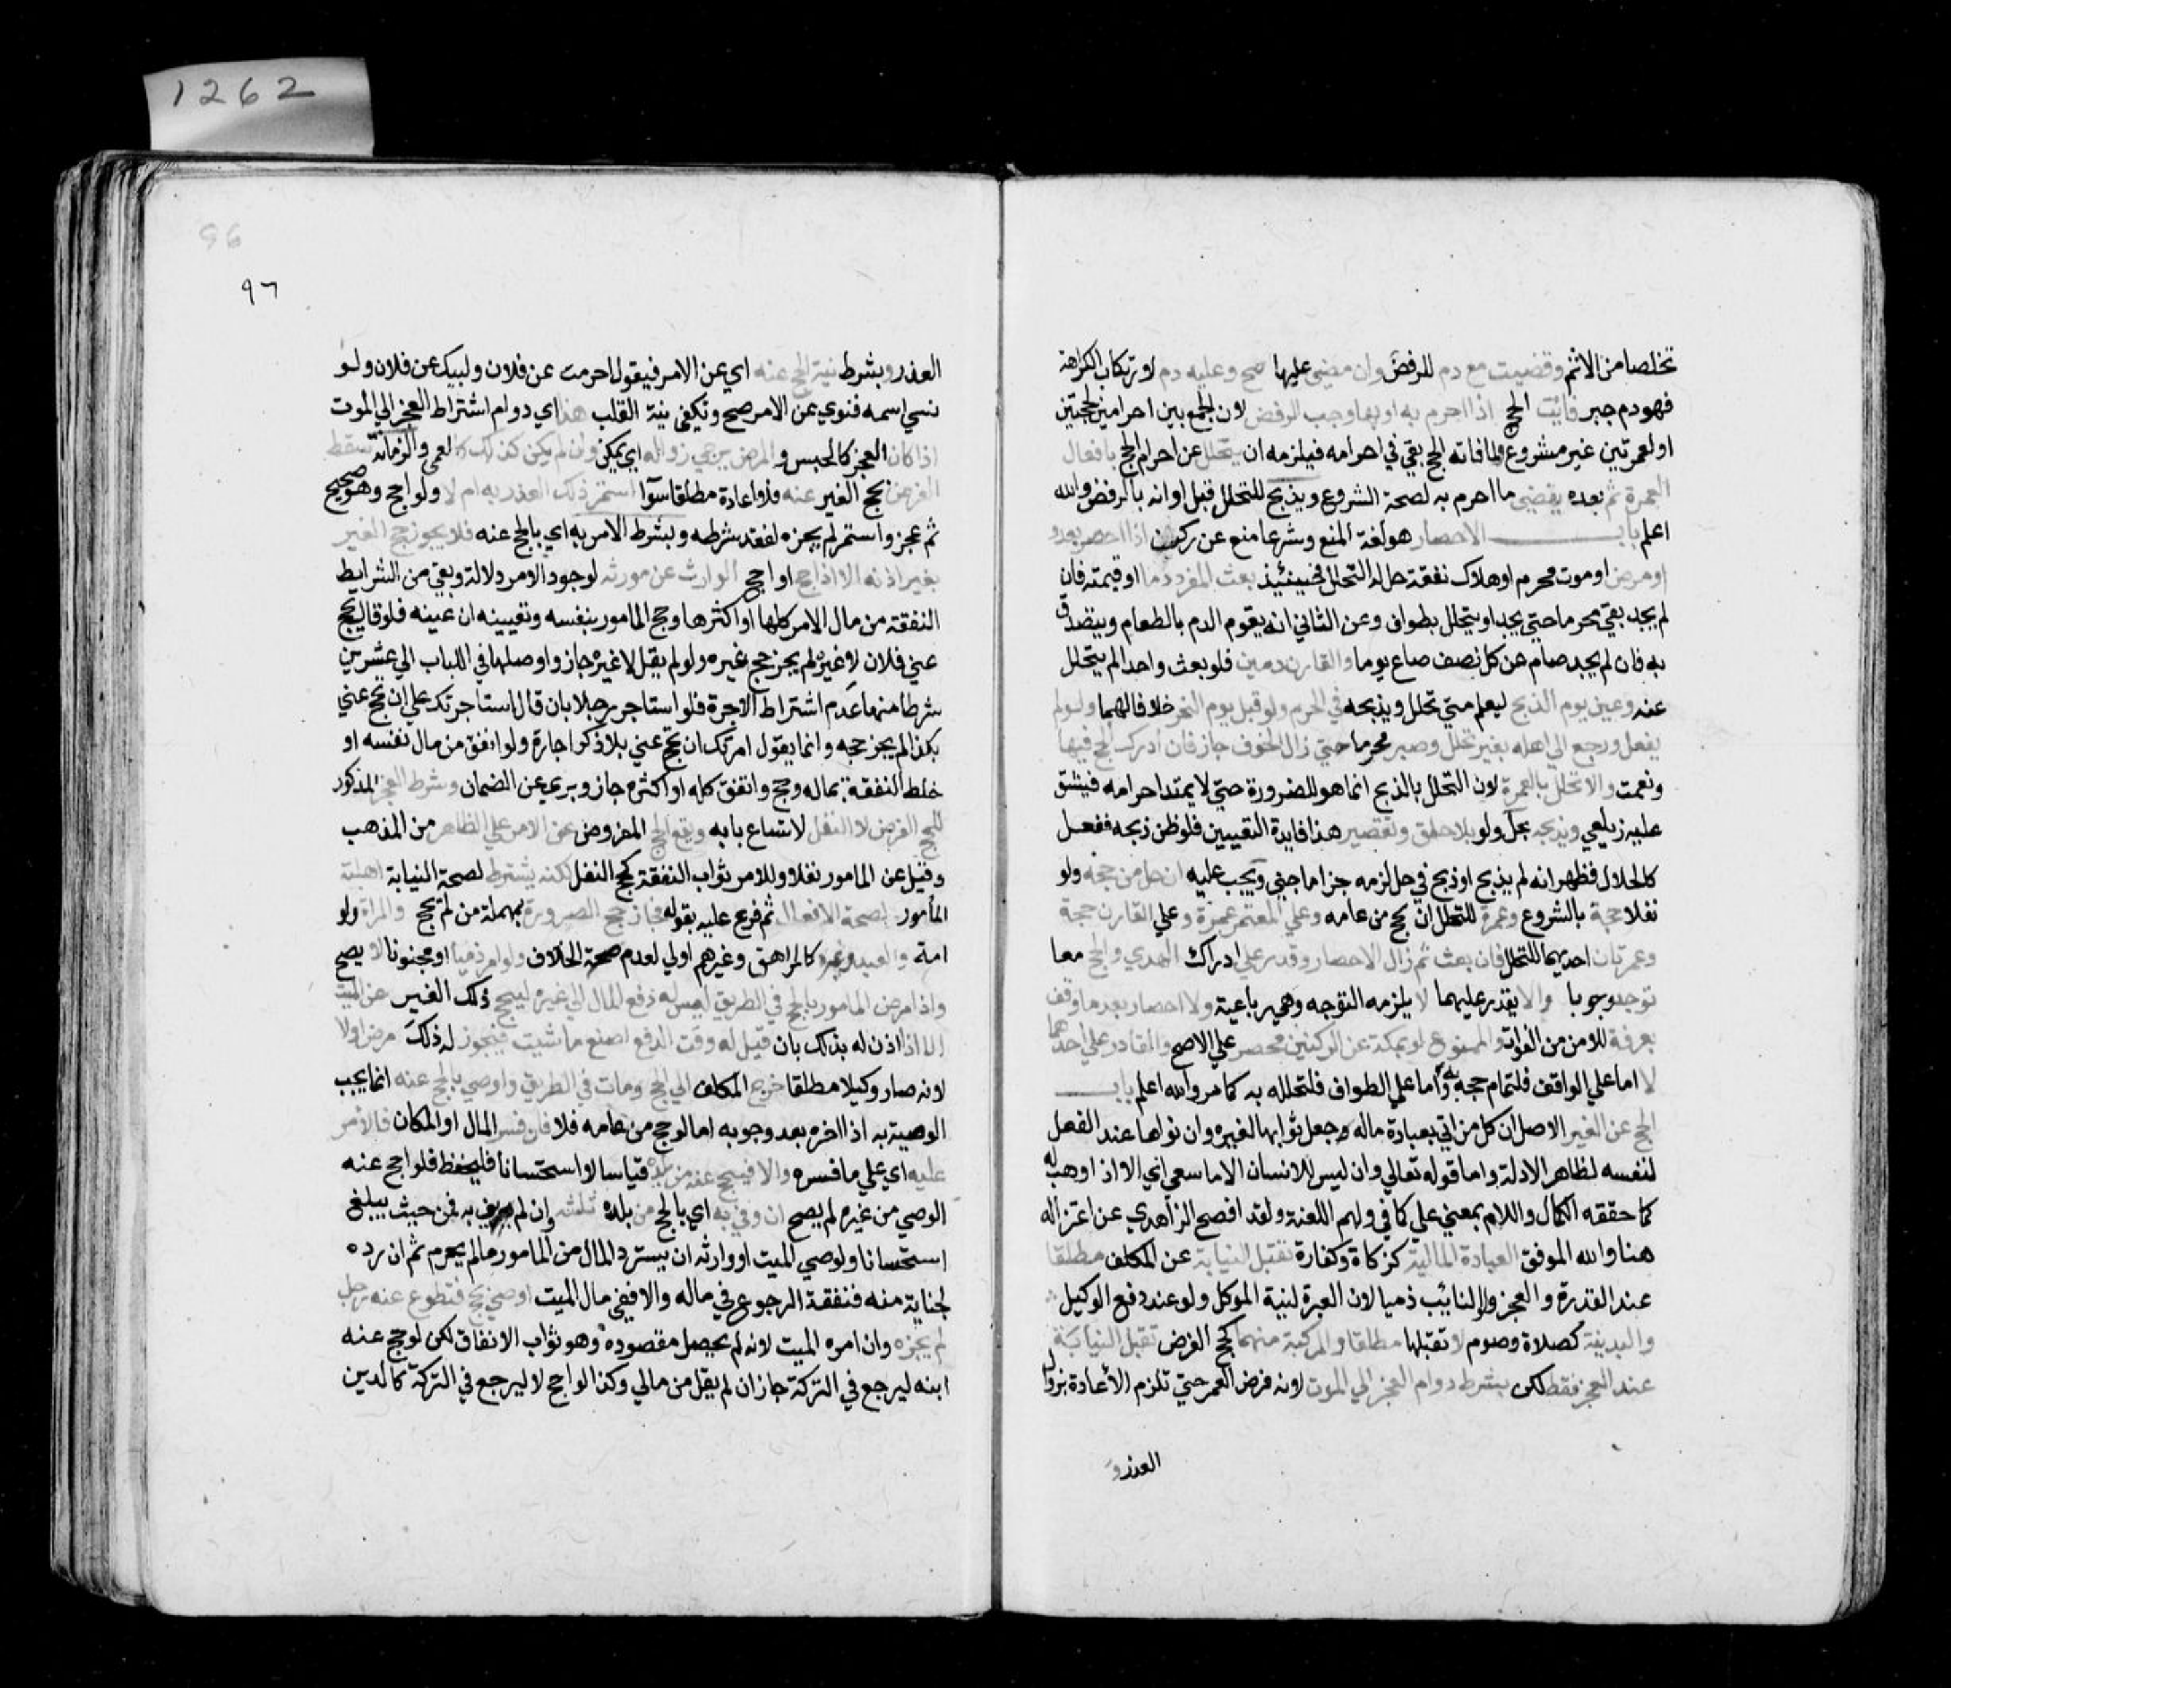 1262
تخلصا من الاثم وقضيت مع دم للرفض وان مضي عليها صح وعليه دم لارتكاب الكراهة
فهو دم جبر فائت الحج اذا احرم به او بها وجب الرفض لان الجمع بين احرامين لحجتين
او لعمرتين غير مشروع ولما فاته الحج بقي في احرامه فيلزمه ان يتحلل عن احرام الحج بافعال
العمرة ثم بعده يقضي ما احرم به لصحة الشروع ويذبح للتحلل قبل اوانه بالرفض والله
اعلم باب الاحصار هو لغة المنع وشرعا منع عن ركن اذا احصر بعدو
او مرض او موت محرم او هلاك نفقة حل له التحلل فحينئيذ بعث المفرد دما او قيمته فان
لم يجد بقي محرما حتي يجد او يتحلل بطواف وعن الثاني انه يقوم الدم بالطعام ويتصدق
به فان لم يجد صام عن كل نصف صاع يوما والقارن دمين فلو بعث واحدا لم يتحلل
عنه وعين يوم الذبح ليعلم متي تحلل ويذبحه في الحرم ولو قبل يوم النحر خلافا لهما ولو لم
يفعل ورجع الي اهله بغير تحلل وصبر محرما حتي زال الخوف جاز فان ادرك الحج فبها
ونعمت والا تحلل بالعمرة لان التحلل بالذبح انما هو للضرورة حتي لا يمتد احرامه فيشق
عليه زيلعي وبذبحه يحل ولو بلا حلق وتقصير هذا فايدة التعيين فلو ظن ذبحه ففعل
كالحلال فظهر انه لم يذبح او ذبح في حل لزمه جزا ما جني ويجب عليه ان حل من حجه ولو
نفلا حجة بالشروع وعمرة للتحلل ان لم يحج من عامه وعلي المعتمر عمرة وعلي القارن حجة
وعمرتان احديهما للتحلل فان بعث ثم زال الاحصار وقدر علي ادراك الهدي والحج معا
توجه وجوبا والا يقدر عليهما لا يلزمه التوجه وهي رباعية ولا احصار بعد ما وقف
بعرفة للامن من الفوات والممنوع لو بمكة عن الركنين محصر علي الاصح والقادر علي احدهما
لا اما علي الواقف فلتمام حجه به واما علي الطواف فلتحلله به كما مر والله اعلم باب
الحج عن الغير الاصل ان كل من اتي بعبادة ماله جعل ثوابها لغيره وان نواها عند الفعل
لنفسه لظاهر الادلة واما قوله تعالي وان ليس للانسان الا ما سعي اي الا اذا وهبه له
كما حققه الكمال واللام بمعني علي كما في ولهم اللعنة ولقد افصح الزاهدي عن اعتزاله
هنا والله الموفق العبادة المالية كزكاة وكفارة تقبل النيابة عن المكلف مطلقا
عند القدرة والعجز ولو النائب ذميا لان العبرة لنية الموكل ولو عند دفع الوكيل
والبدنية كصلاة وصوم لا تقبلها مطلقا والمركبة منهما كحج الفرض تقبل النيابة
عند العجز فقط لكن بشرط دوام العجز الي الموت لانه فرض العمر حتي تلزم الاعادة بزوال
العذر و
96
٩٦
العذر وبشرط نية الحج عنه اي عن الامر فيقول احرمت عن فلان ولبيك عن فلان ولو
نسي اسمه فنوي عن الامر صح وتكفي نية القلب هذا اي دوام اشتراط العجز الي الموت
اذا كان العجز كالحبس والمرض يرجي زواله اي يمكن وان لم يكن كذلك كالعمي والزمانة سقط
الفرض بحج الغير عنه فلا اعادة مطلقا سوآ استمر ذلك العذر به ام لا ولو احج وهو صحيح
ثم عجز واستمر لم يجزه لفقد شرطه وبشرط الامر به اي بالحج عنه فلا يجوز حج الغير
بغير اذنه الا اذا حج او احج الوارث عن مورثه لوجود الامر دلالة وبقي من الشرايط
النفقة من مال الامر كلها او اكثرها وحج المامور بنفسه وتعيينه ان عينه فلو قال يحج
عني فلان لا غيره لم يجز حج غيره ولو لم يقل لا غيره جاز واوصلها في اللباب الي عشرين
شرطا منها عدم اشتراط الاجرة فلو استاجر رجلا بان قال استاجرتك علي ان تحج عني
بكذا لم يجز حجه وانما يقول امرتك ان تحج عني بلا ذكر اجارة ولو انفق من مال نفسه او
خلط النفقة بماله وحج وانفق كله او اكثره جاز وبري عن الضمان وشرط العجز المذكور
للحج الفرض لا النفل لاتساع بابه ويقع الحج المفروض عن الامر علي الظاهر من المذهب
وقيل عن المامور نفلا وللامر ثواب النفقة كحج النفل لكنه يشترط لصحة النيابة اهلية
المأمور لصحة الافعال ثم فرع عليه بقوله فجاز حج الصرورة بمهملة من لم يحج والمراة ولو
امة والعبد وغيره كالمراهق وغيرهم اولي لعدم صحة الخلاف ولو امر ذميا او مجنونا لا يصح
واذا مرض المامور بالحج في الطريق ليس له دفع المال الي غيره ليحج ذلك الغير عن الميت
الا اذا اذن له بذلك بان قيل له وقت الدفع اصنع ما شيت فيجوز له ذلك مرض اولا
لانه صار وكيلا مطلقا خرج المكلف الي الحج ومات في الطريق واوصي بالحج عنه انما يجب
الوصية به اذا اخره بعد وجوبه اما لو حج من عامه فلا فان فسر المال او المكان فالامر
عليه اي علي ما فسره والا فيحج عنه من بلده قياسا لا استحسانا فليحفظ فلو احج عنه
الوصي من غيره لم يصح ان وفي به اي بالحج من بلده ثلثه وان لم يف به فمن حيث يبلغ
استحسانا ولوصي الميت او وارثه ان يسترد المال من المامور ما لم يحرم ثم ان رده
لجناية منه فنفقة الرجوع في ماله والا ففي مال الميت اوصي بحج فتطوع عنه رجل
لم يجزه وان امره الميت لانه لم يحصل مقصوده وهو ثواب الانفاق لكن لو حج عنه
ابنه ليرجع في التركة جاز ان لم يقل من مالي وكذا لو احج لا ليرجع في التركة كالدين